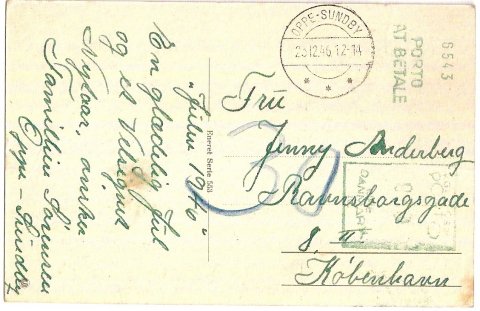 "Julen 1946"
En glædelig Jul
og et Velsignet
Nytaar, ønskes
Familien Sørensen
Oppe-Sundby
Eneret Serie 558
OPPE-SUNDBY
23.12.46 12-14
PORTO
AT BETALE
6543
30
Fru
Jenny Anderberg
Ravnsborgsgade
8 II
København
DANMARK